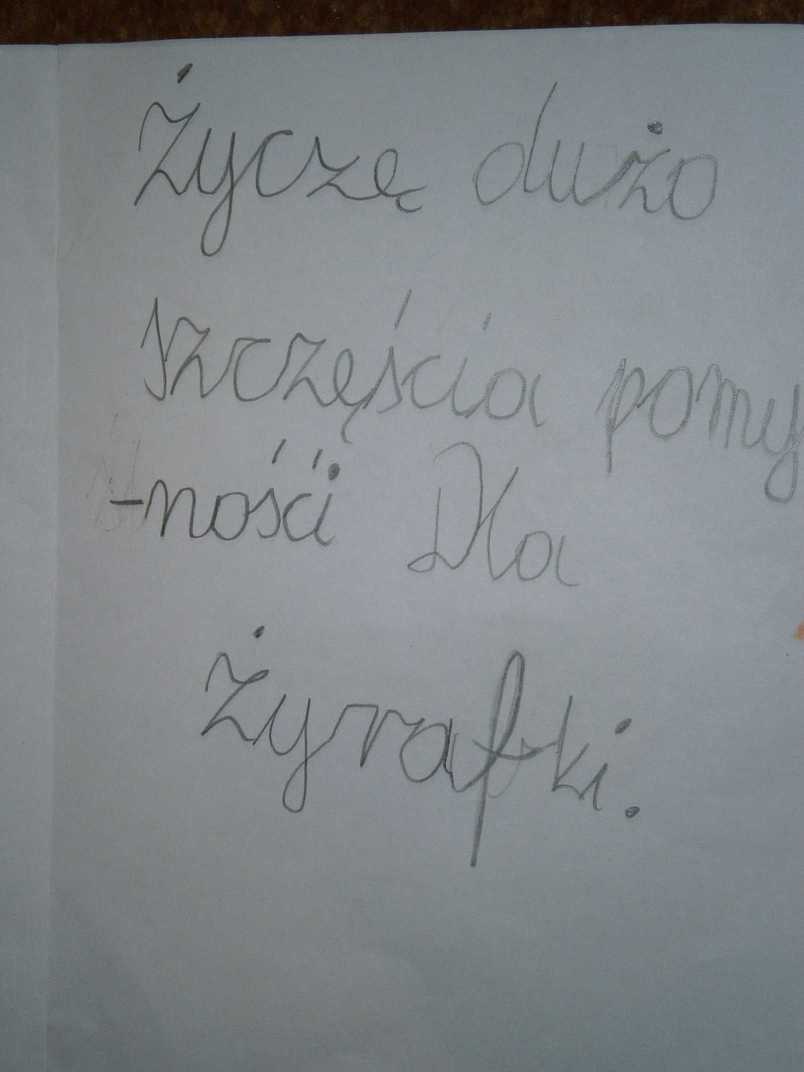 Życzę dużo
szczęścia pomy
-nośći Dla
Żyrafki.